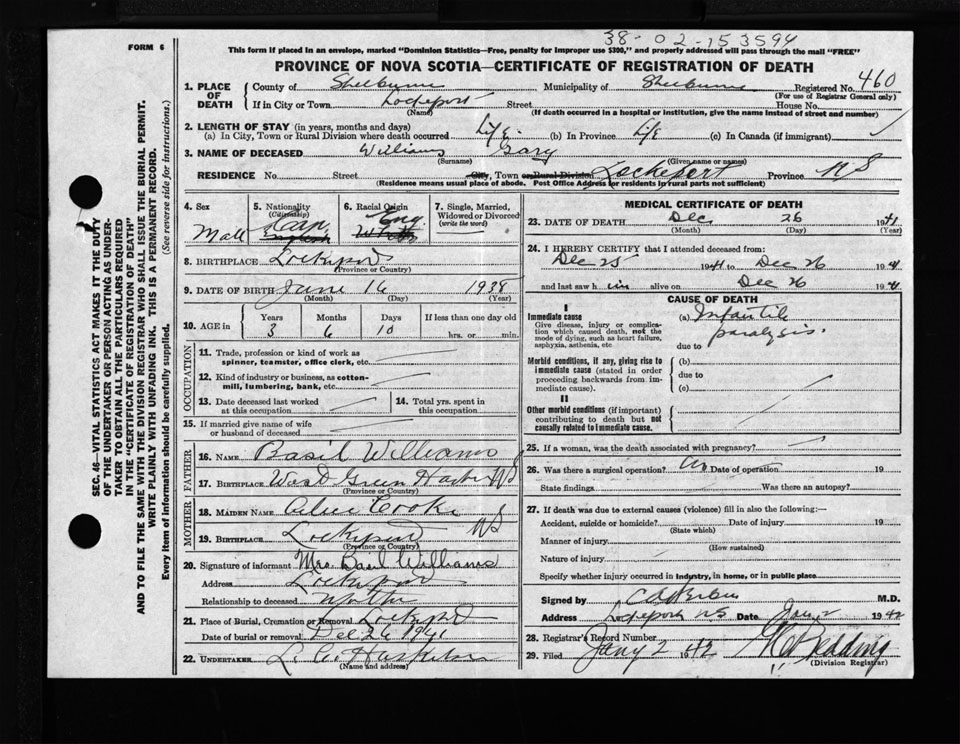 38-02-153594
FORM 6
This form if placed in an envelope, marked "Dominion Statistics—Free, penalty for improper use $300," and properly addressed will pass through the mail "FREE"
PROVINCE OF NOVA SCOTIA—CERTIFICATE OF REGISTRATION OF DEATH
SEC. 46—VITAL STATISTICS ACT MAKES IT THE DUTY
OF THE UNDERTAKER OR PERSON ACTING AS UNDER-
TAKER TO OBTAIN ALL THE PARTICULARS REQUIRED
IN THE "CERTIFICATE OF REGISTRATION OF DEATH"
AND TO FILE THE SAME WITH THE DIVISION REGISTRAR WHO SHALL ISSUE THE BURIAL PERMIT.
WRITE PLAINLY WITH UNFADING INK. THIS IS A PERMANENT RECORD.
Every item of information should be carefully supplied. (See reverse side for instructions.)
1. PLACE OF DEATH County of Shelburne Municipality of Shelburne Registered No. 460
(For use of Registrar General only)
If in City or Town Lockeport Street House No.
(Name) (If death occurred in a hospital or institution, give the name instead of street and number)
2. LENGTH OF STAY (in years, months and days)
(a) In City, Town or Rural Division where death occurred Life. (b) In Province Life (c) In Canada (if immigrant)
3. NAME OF DECEASED Williams Gary
(Surname) (Given name or names)
RESIDENCE No. Street City, Town or Rural Division Lockeport Province NS
(Residence means usual place of abode. Post Office Address for residents in rural parts not sufficient)
4. Sex 5. Nationality (Citizenship) 6. Racial Origin 7. Single, Married, Widowed or Divorced (write the word)
Male Can English Eng White
8. BIRTHPLACE Lockeport
(Province or Country)
9. DATE OF BIRTH June 16 1938
(Month) (Day) (Year)
10. AGE in Years Months Days If less than one day old
3 6 10 hrs. or min.
OCCUPATION
11. Trade, profession or kind of work as
spinner, teamster, office clerk, etc.
12. Kind of industry or business, as cotton-
mill, lumbering, bank, etc.
13. Date deceased last worked at this occupation 14. Total yrs. spent in this occupation
15. If married give name of wife
or husband of deceased
FATHER
16. NAME Basil Williams
17. BIRTHPLACE Wood Green Harbor NS
(Province or Country)
MOTHER
18. MAIDEN NAME Cooke
19. BIRTHPLACE Lockeport NS
(Province or Country)
20. Signature of informant Mrs. Basil Williams
Address Lockeport
Relationship to deceased Mother
21. Place of Burial, Cremation or Removal Lockeport
Date of burial or removal Dec 26 1941
22. UNDERTAKER L. C.
(Name and address)
MEDICAL CERTIFICATE OF DEATH
23. DATE OF DEATH Dec 26 1941
(Month) (Day) (Year)
24. I HEREBY CERTIFY that I attended deceased from:
Dec 25 1941 to Dec 26 1941
and last saw h im alive on Dec 26 1941
CAUSE OF DEATH
I
Immediate cause (a) Infantile
Give disease, injury or complica-
tion which caused death, not the paralysis.
mode of dying, such as heart failure,
asphyxia, asthenia, etc. due to
Morbid conditions, if any, giving rise to (b)
immediate cause (stated in order due to
proceeding backwards from im-
mediate cause). (c)
II
Other morbid conditions (if important)
contributing to death but not
causally related to immediate cause.
25. If a woman, was the death associated with pregnancy?
26. Was there a surgical operation? No Date of operation 19
State findings Was there an autopsy?
27. If death was due to external causes (violence) fill in also the following:—
Accident, suicide or homicide? Date of injury 19
(State which)
Manner of injury
(How sustained)
Nature of injury
Specify whether injury occurred in industry, in home, or in public place
Signed by M.D.
Address Lockeport NS Date Jan 2 1942
28. Registrar's Record Number
29. Filed Jany 2 1942
(Division Registrar)